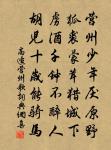 營州少年厭原野
狐裘蒙茸獵城下
虜酒千鍾不醉人
胡兒十歲能騎馬
高適營州歌詞典網喜